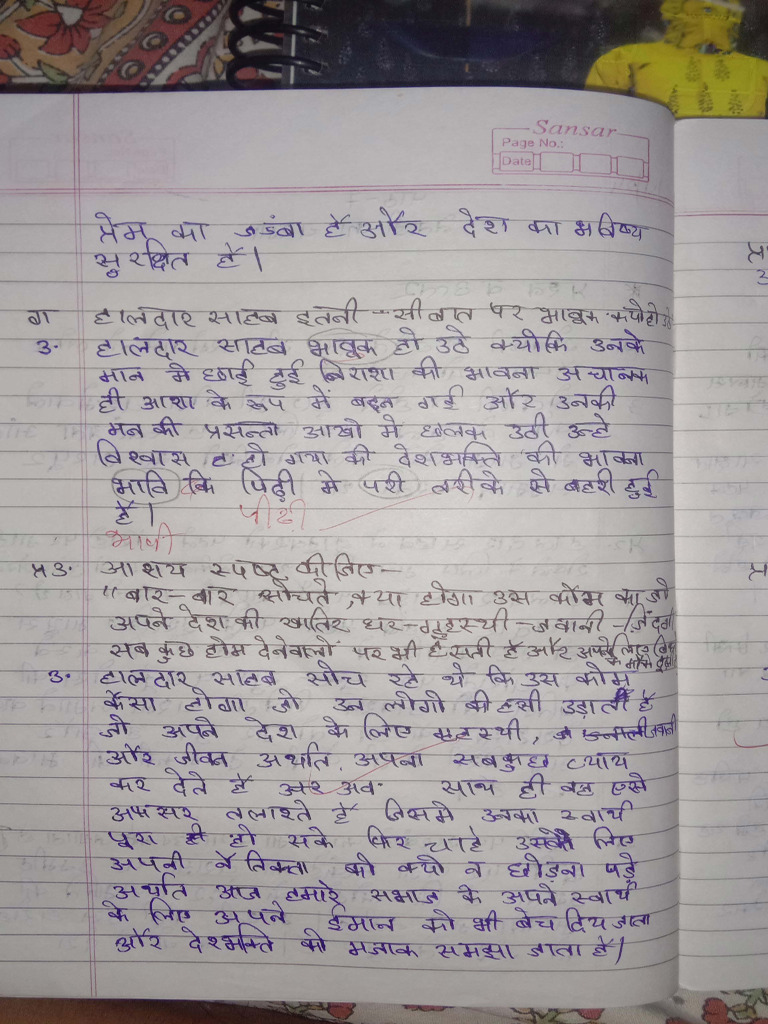 Sansar
Page No.:
Date
प्रेम का जज्बा है और देश का भविष्य
सुरक्षित है।
ग हालदार साहब इतनी-सी बात पर भावुक क्यों हो उठे
उ. हालदार साहब भाबुक हो उठे क्योकि उनके
मान मे छाई हुई निराशा की भावना अचानक
ही आशा के रूप में बदल गई और उनकी
मन की प्रसन्ता आखो में छलक उठी उन्हे
विश्वास हो गया की देशभक्ति की भावना
भावि कि पिढ़ी मे परी तरीके से बहरी हुई
है। पीढी
भावी
प्र3. आशय स्पष्ट कीजिए-
"बार-बार सोचते, क्या होगा उस कौम का जो
अपने देश की खातिर घर-गृहस्थी-जवानी-जिंदगी
सब कुछ होम देनेवालों पर भी हँसती है और अपने लिए
उ. हालदार साहब सोच रहे थे कि उस कौम
कैसा होगा जो उन लोगो की हसी उड़ाती है
जो अपने देश के लिए जवानी
और जीवन अर्थात अपना सबकुछ त्याग
कर देते है साथ ही वह एसे
अवसर तलाश्ते हैं जिसमे उनका स्वार्थ
पूरा हो सके फिर चाहे उसके लिए
अपनी नैतिक्ता को क्यो न छोड़ना पड़े
अर्थात आज हमारे समाज के अपने स्वार्थ
के लिए अपने ईमान को भी बेच दिय जाता
और देशभक्ति को मजाक समझा जाता है।